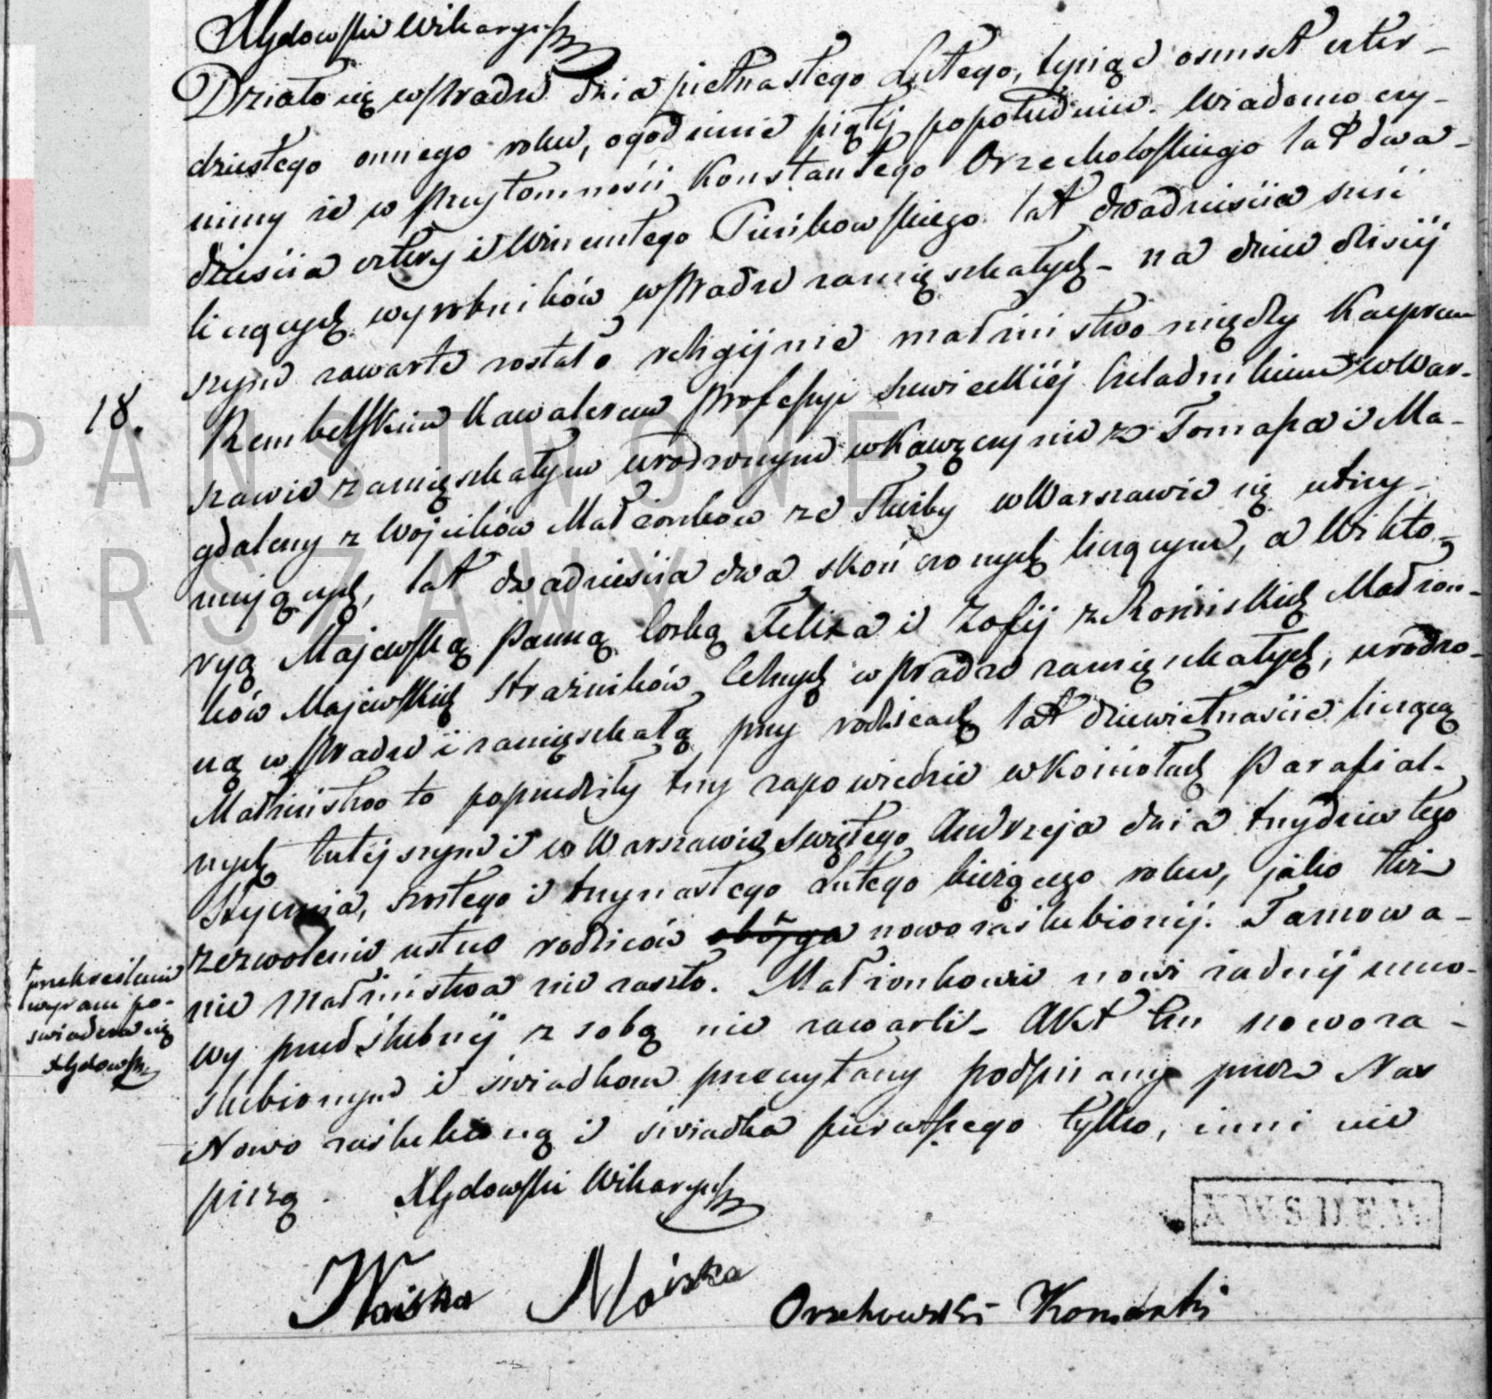 XGdowski Wikaryusz
Działo się w Pradze dnia piętnastego Lutego, tysiąc osmset czter-
dziestego osmego roku, o godzinie piątej popołudniu. Wiadomo czy-
nimy że w Przytomności Konstantego Orzechowskiego lat dwa-
dzieścia cztery i Wincentego Pieńkowskiego lat dwadzieścia sześć
liczących wyrobników w Pradze zamięszkałych – na dniu dzisiej
szym zawarte zostało religijnie małżeństwo między Kacprem
18. Rembelskim Kawalerem Professyi szewieckiej czeladnikiem w War-
szawie zamięszkałym urodzonym w Kawęczynie z Tomasza i Ma-
gdaleny z Wojcików Małżonków ze służby w Warszawie się utrzy-
mujących, lat dwadzieścia dwa skończonych liczącym, a Wikto-
ryą Majewską Panną Corką Felixa i Zofij z Rosińskich Małżon-
ków Majewskich Strażników Celnych w Pradze zamięszkałych, urodzo-
ną w Pradze i zamięszkałą przy rodzicach lat dziewiętnaście liczącą
Małżeństwo to poprzedziły trzy zapowiedzie w Kościołach Parafial-
nych tutejszym i w Warszawie Swiętego Andrzeja dnia trzydziestego
Stycznia, szostego i trzynastego Lutego bieżącego roku, jako też
zezwolenie ustne rodziców nowozaślubionej. Tamowa-
nie Małżeństwa nie zaszło. Małżonkowie nowi żadnej umo-
wy przedślubnej z sobą nie zawarli – Akt ten nowoza-
ślubionym i świadkom przeczytany podpisany przez Nas
Nowo zaślubioną i świadka pierwszego tylko, inni nie
piszą. XGdowski Wikaryusz
przekreślenie
wyrazu po-
świadcza się
XGdowski
Orzechowski
X.W.S.D.F.W.
PAŃSTWOWE
WARSZAWY